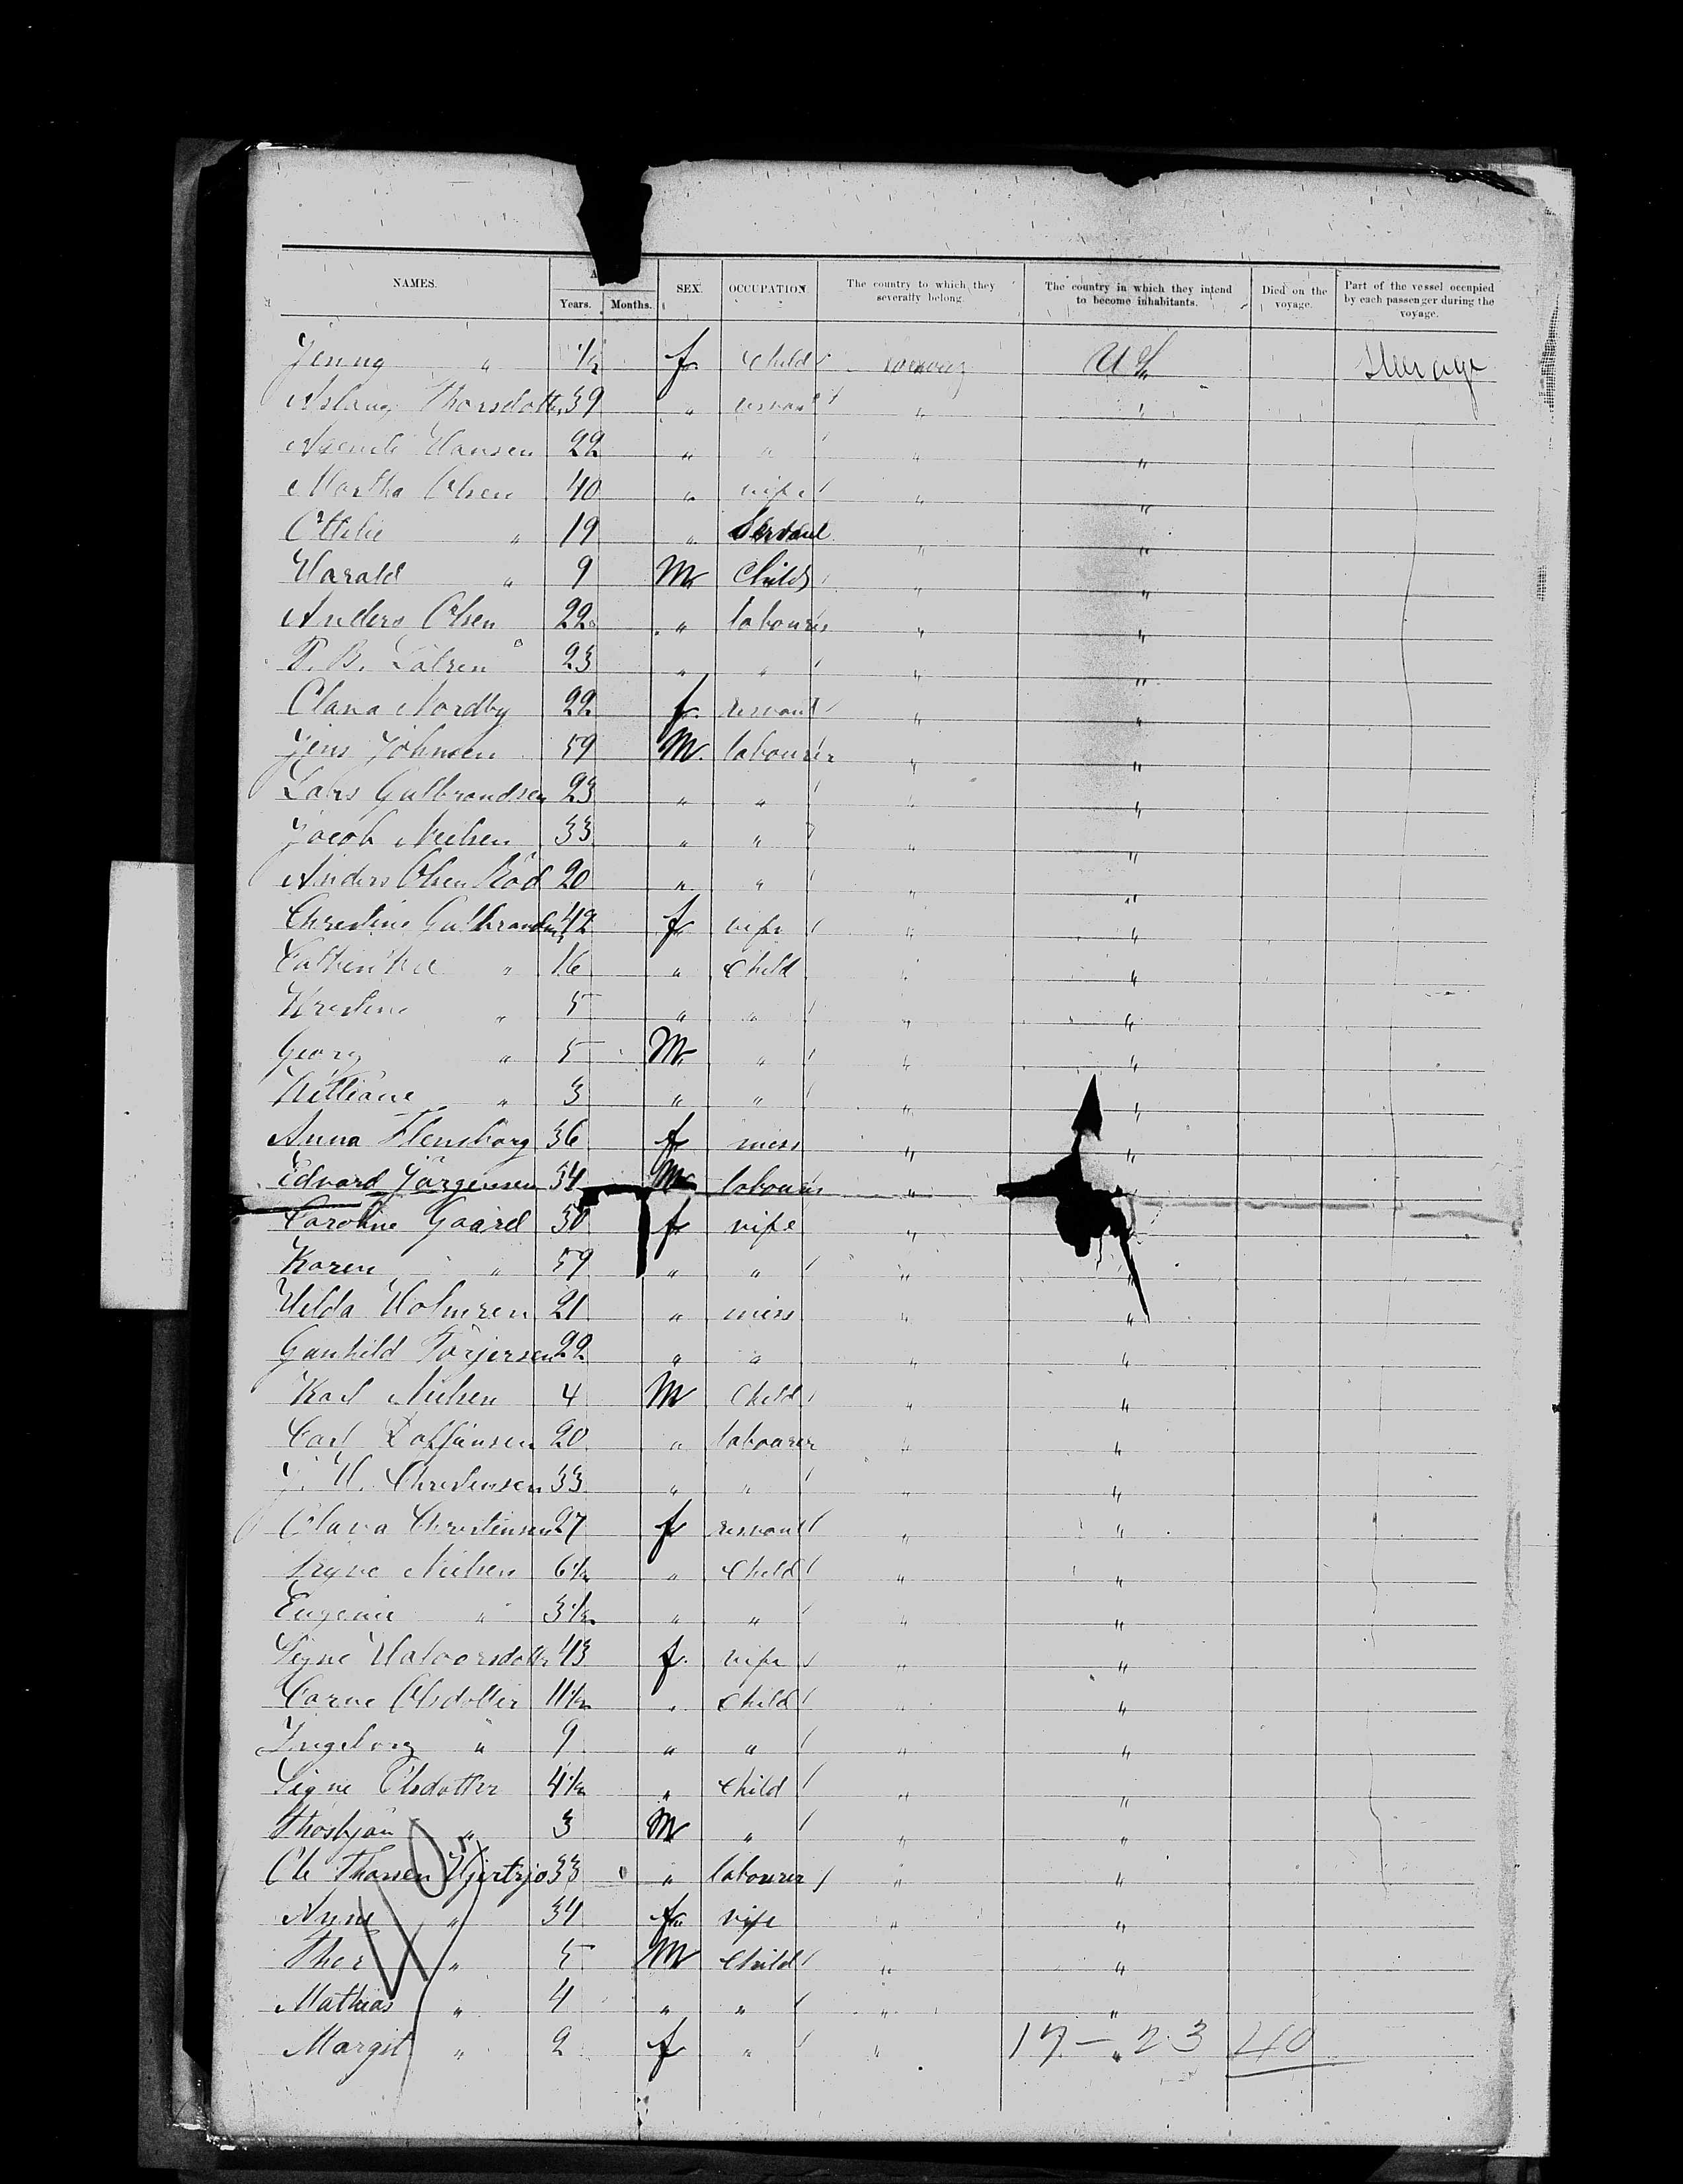 NAMES. A Years. Months. SEX. OCCUPATION. The country to which they severally belong. The country in which they intend to become inhabitants. Died on the voyage. Part of the vessel occupied by each passenger during the voyage.
Jenny " 1/2 f. Child Norway US Steerage
Aslaug Thorsdotter 39 " servant " "
Hansen 22 " " " "
Martha Olsen 40 " wife " "
Ottilie " 19 " Servant " "
Harald " 9 M Child " "
Anders Olsen 22 " labourer " "
P. B. 23 " " " "
Clara Nordby 22 f. servant " "
Jens Johnsen 59 M. labourer " "
Lars Gulbrandsen 23 " " " "
Jacob Nielsen 33 " " " "
Anders Olsen Röd 20 " " " "
Christine Gulbrandsen 42 f wife " "
" 16 " Child " "
Kristine " 5 " " " "
Georg " 5 M " " "
" 3 " " " "
Anna Flensborg 36 f miss " "
Edvard Jörgensen 34 M labourer " "
Caroline Gaard 30 f wife "
Karen " 59 " " " "
Hilda 21 " miss " "
Gunhild 22 " " " "
Karl Nielsen 4 M Child " "
Carl 20 " labourer " "
J. H. Christensen 33 " " " "
Clara Christensen 27 f servant " "
Nielsen 6 1/2 " Child " "
Eugenie " 3 1/2 " " " "
Signe Halvorsdotter 43 f. wife " "
Olsdotter 11 1/2 " Child " "
Ingeborg " 9 " " " "
Signe Olsdotter 4 1/2 " Child " "
" 3 M " " "
Ole Thorsen 33 " labourer " "
" 34 f wife " "
Thor " 5 M Child " "
Mathias " 4 " " " "
Margit " 2 f " " " 17 - 23 40